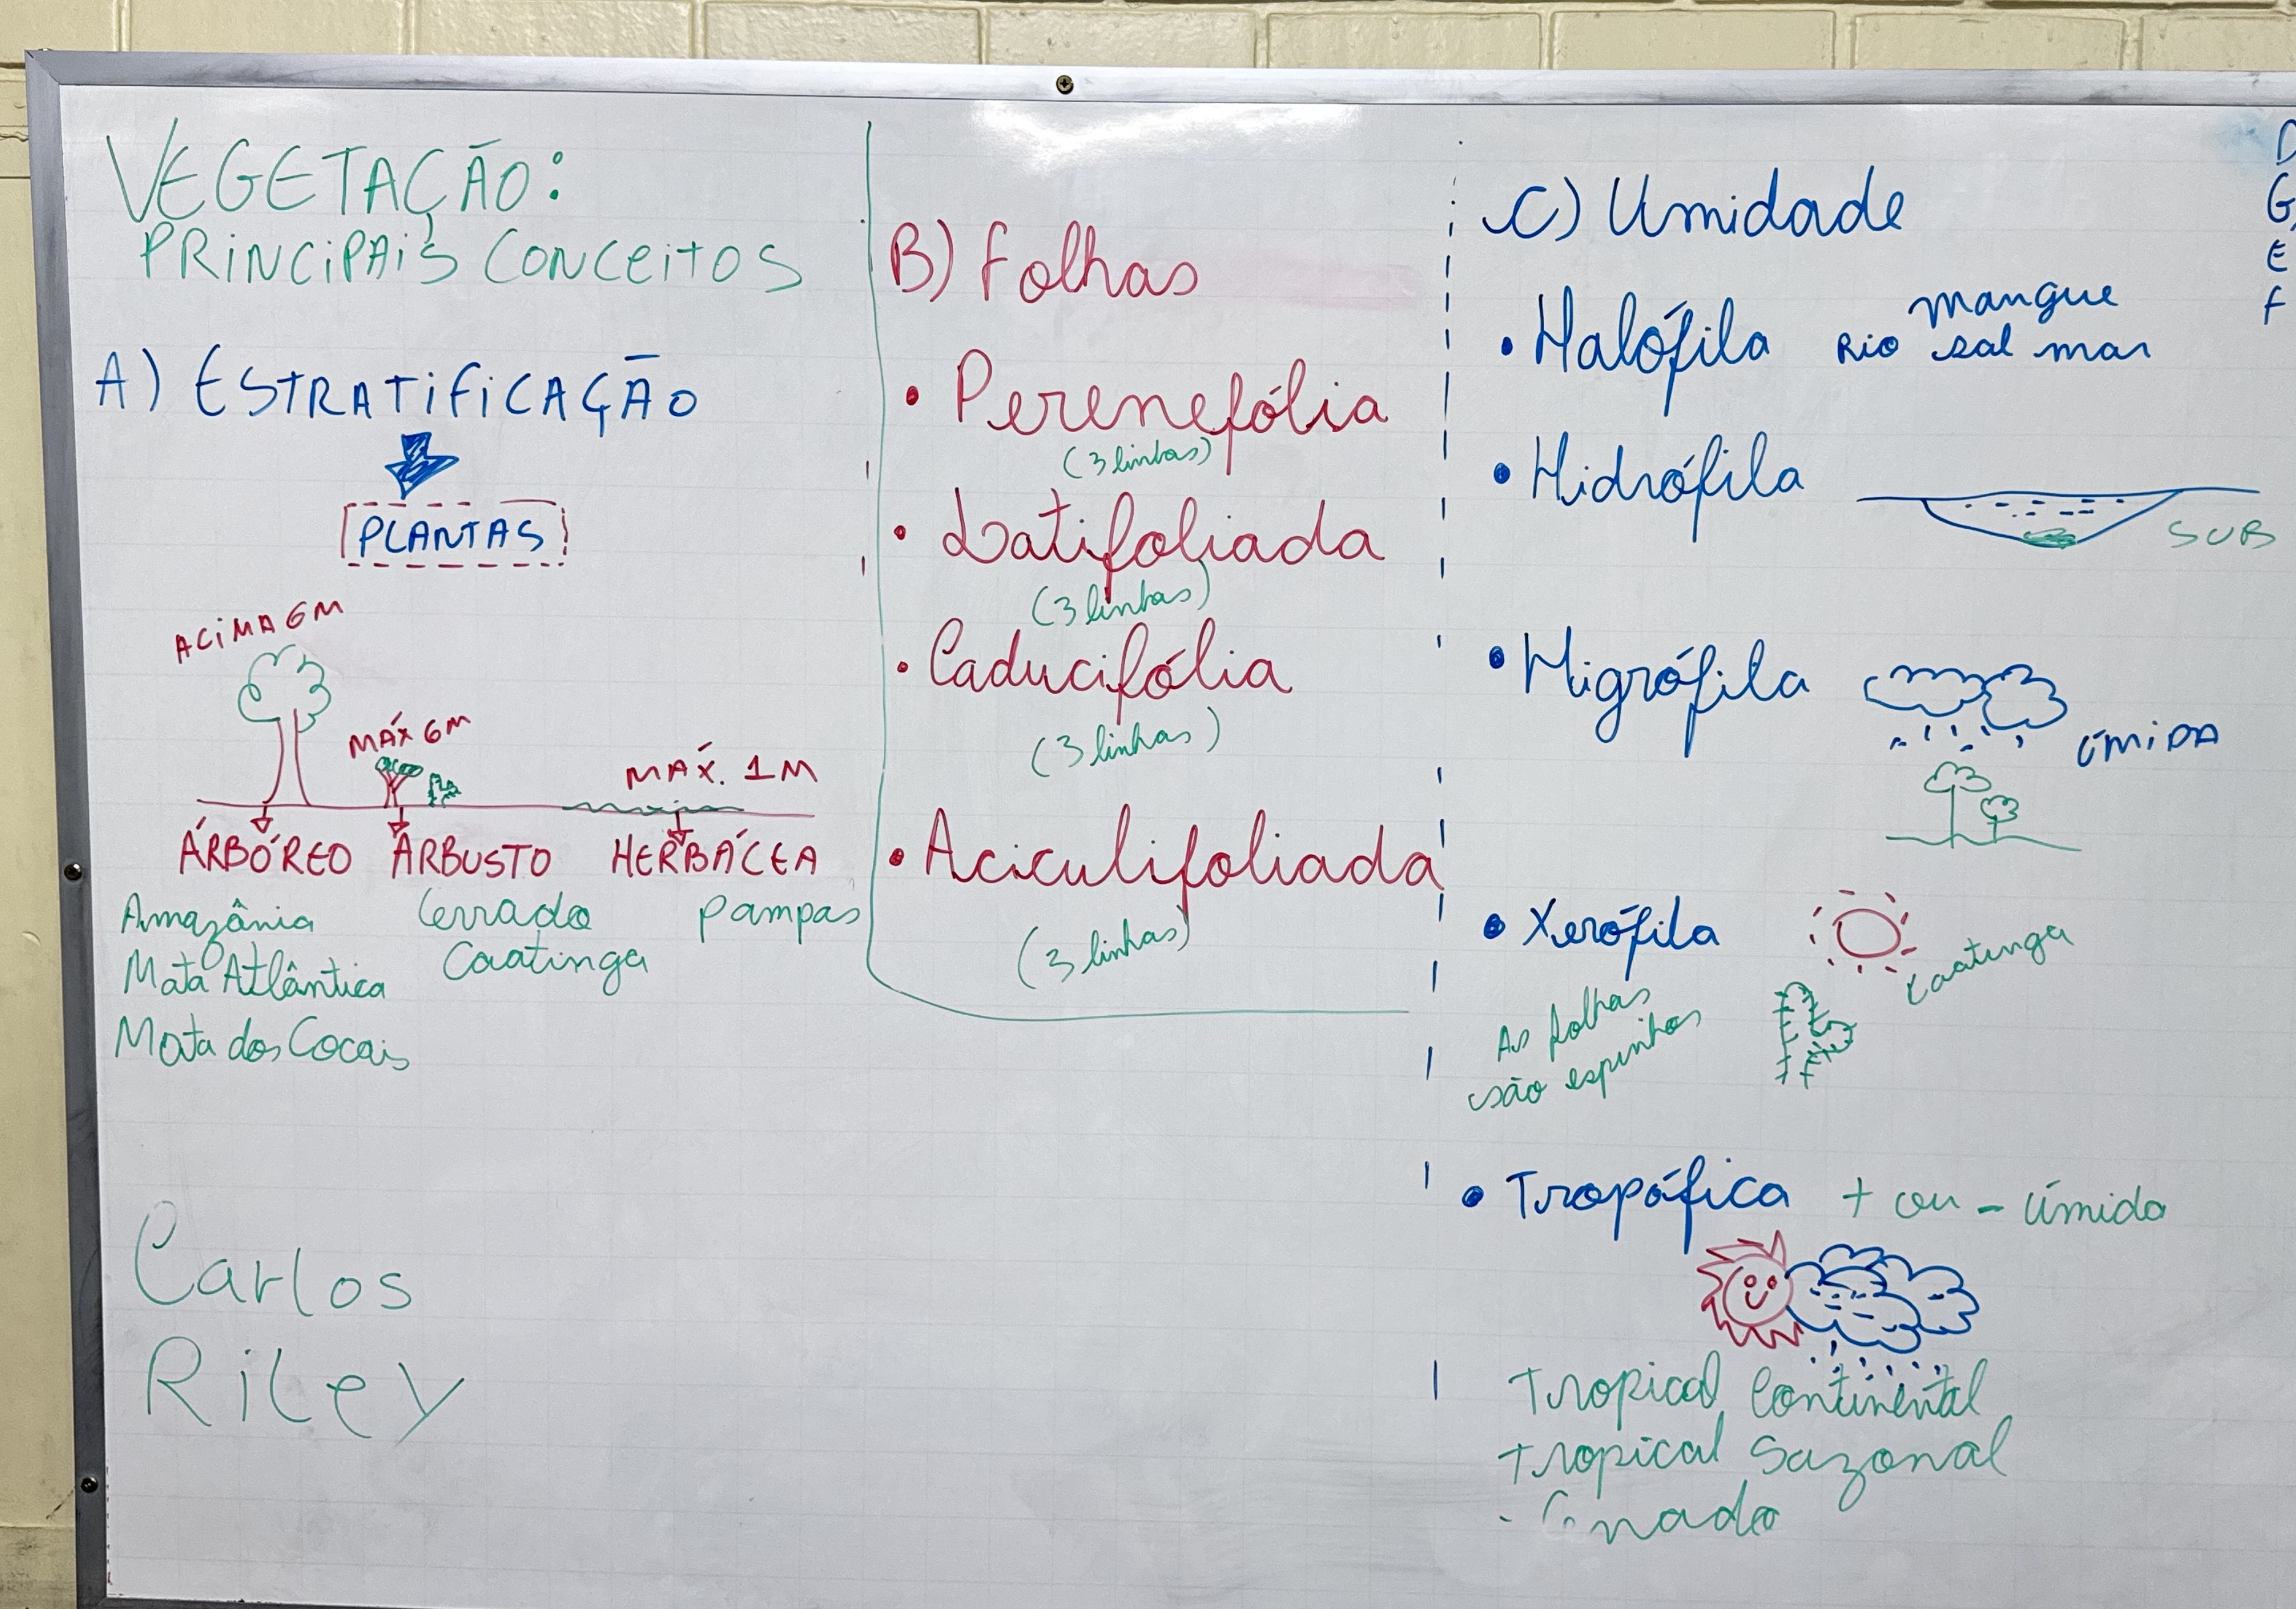 VEGETAÇÃO:
PRINCIPAIS CONCEITOS
A) ESTRATIFICAÇÃO
PLANTAS
ACIMA 6M
MÁX 6M
MÁX. 1M
ÁRBÓREO ARBUSTO HERBÁCEA
Amazônia Cerrado pampas
Mata Atlântica Caatinga
Mata dos Cocais
Carlos
Riley
B) Folhas
• Perenefólia
(3 linhas)
• Latifoliada
(3 linhas)
• Caducifólia
(3 linhas)
• Aciculifoliada
(3 linhas)
C) Umidade
• Halófila Rio mangue sal mar
• Hidrófila
SUB
• Higrófila
ÚMIDA
• Xerófila
Caatinga
As folhas
são espinhos
• Tropófica + ou - úmida
Tropical Continental
Tropical Sazonal
D
G
E
F